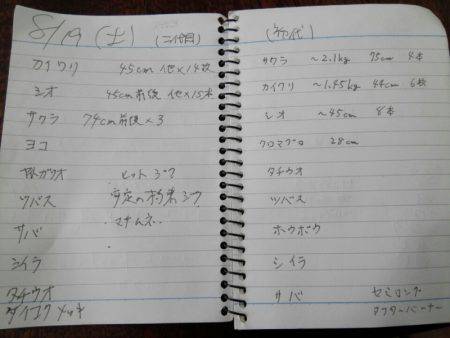 8/19 (土) (二代目)
カイワリ 45cm 他×14枚
シオ 45cm前後 他×15本
サクラ 74cm前後×3
ヨコ
ガツオ ヒットジグ
ツバス 安定の約束ジグ
サバ マサムネ..
シイラ
タチウオ
ダイコクメッキ
(初代)
サクラ ~2.1kg 75cm 4本
カイワリ ~1.45kg 44cm 6枚
シオ ~45cm 8本
クロマグロ 28cm
タチウオ
ツバス
ホウボウ
シイラ
サバ セミロング
アフターバーナー